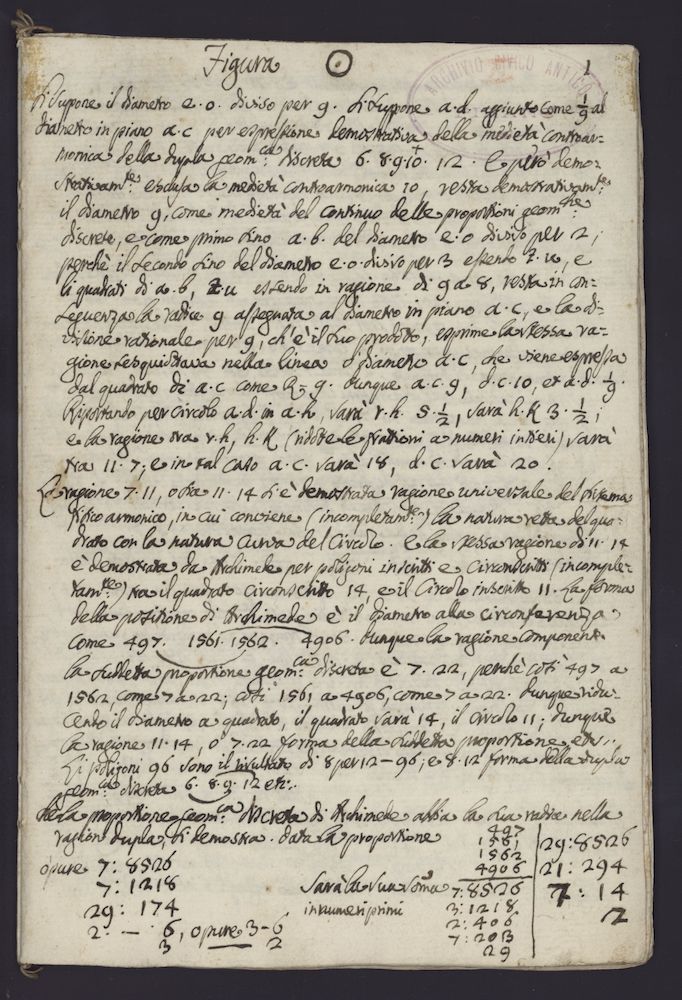 Figura ⊙
1
ARCHIVIO CIVICO ANTICO
Si suppone il diametro e. o. diviso per 9. Si suppone a. d. aggiunto come 1/9 al
diametro in piano a. c per espressione demostrativa della medietà controar-
monica della dupla geom:ca discreta 6. 8. 9. 10. 12. E però demo:
strativam:te esclusa la medietà controarmonica 10, resta demostrativam:te
il diametro 9, come medietà del continuo delle proportioni geom:che
discrete, e come primo sino a. b. del diametro e. o diviso per 2;
perchè il secondo sino del diametro e. o. diviso per 3 essendo z. u, e
li quadrati di a. b, z. u essendo in ragione di 9 a 8, resta in con-
seguenza la radice 9 assegnata al diametro in piano a. c, e la di-
visione rationale per 9, ch'è il suo prodotto, esprime la stessa ra-
gione sesquiottava nella linea o diametro a. c, che viene espressa
dal quadrato di a. c come 9. dunque a. c. 9, d. c. 10, et a. d. 1/9.
Riportando per circolo a. d. in a. h, sarà r. h. 5 1/2, sarà h. K 3. 1/2;
e la ragione tra r. h, h. K (ridotte le frationi a numeri intieri) sarà
tra 11. 7; e in tal caso a. c. sarà 18, d. c. sarà 20.
La ragione 7. 11, o sia 11. 14 si è demostrata ragione universale del sistema
fisico armonico, in cui conviene (incompletam:te) la natura retta del qua-
drato con la natura curva del Circolo. e la stessa ragione di 11. 14
è demostrata da Archimede per poligoni inscritti e circonscritti (incomple-
tam:te) tra il quadrato circonscritto 14, e il Circolo inscritto 11. La forma
della positione di Archimede è il diametro alla circonferenza
come 497. 1561. 1562. 4906. dunque la ragione component:
la suddetta proportione geom:ca discreta è 7. 22, perchè così 497 a
1562 come 7 a 22; così 1561 a 4906, come 7 a 22. dunque ridu-
cendo il diametro a quadrato, il quadrato sarà 14, il circolo 11; dunque
la ragione 11. 14, o 7. 22 forma della suddetta proportione etc:.
Li poligoni 96 sono il risultato di 8 per 12 – 96; e 8. 12 forma della dupla
geom:ca discreta 6. 8. 9. 12 etc:.
la proportione geom:ca discreta di Archimede abbia la sua radice nella
ragion dupla, si demostra. data la proportione
497
1561
1562
4906
sarà la sua somma 7: 8526
in numeri primi 3: 1218
2: 406
7: 203
29
29: 8526
21: 294
7: 14
2
opure 7: 8526
7: 1218
29: 174
2: – 6, opure 3–6
3 2